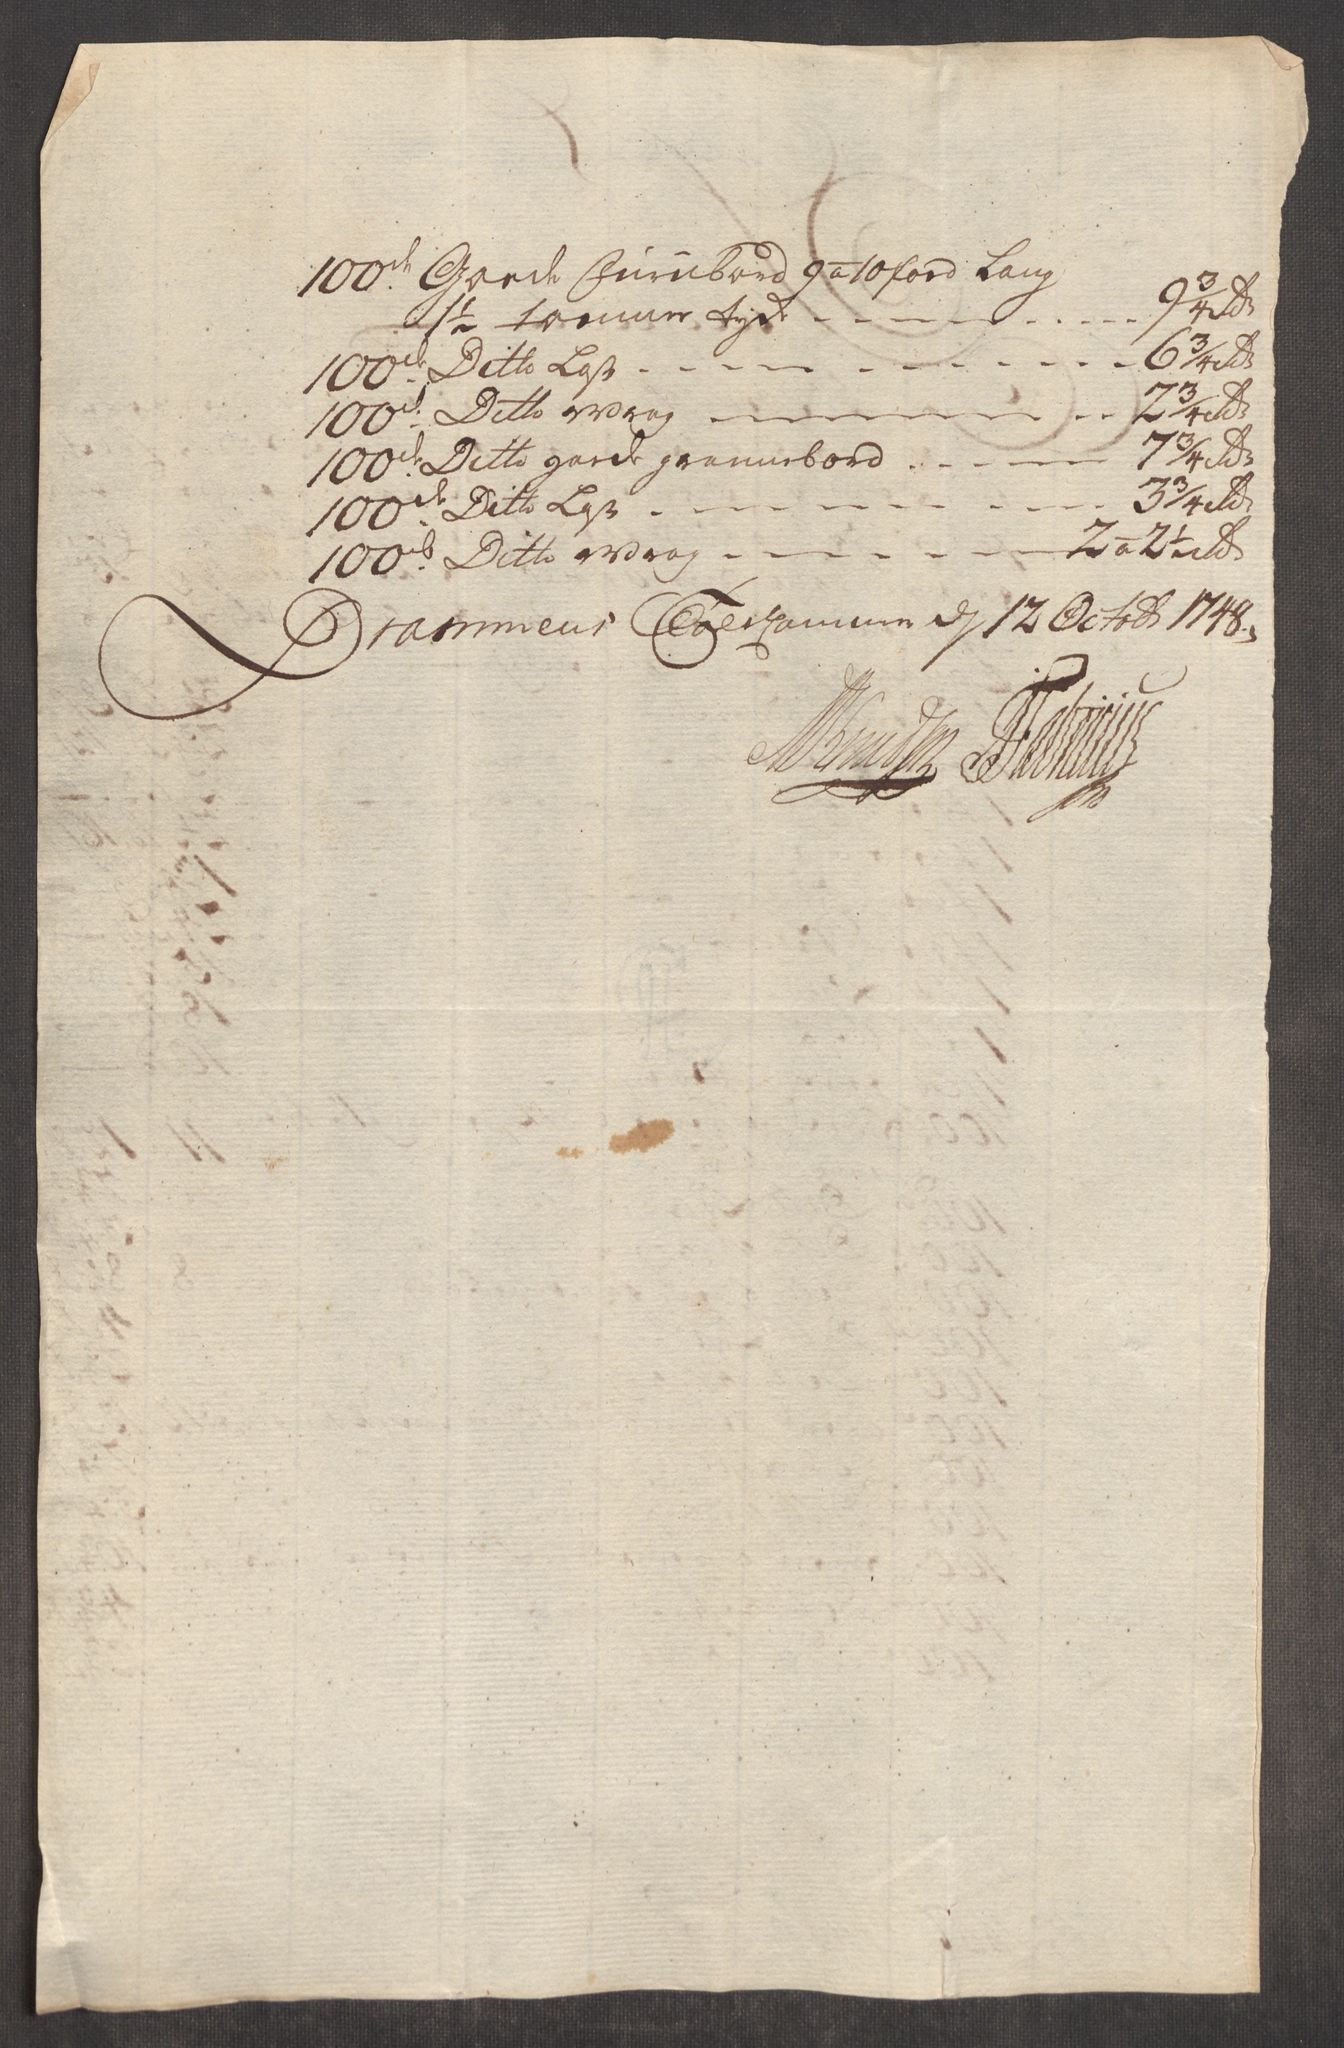 100de Goede Furubord 9 a 10 foed Lang
1½ tommer tyk - - - 9¾ Rdr
100de Ditto Lest - - - 6¾ Rdr
100de Ditto Wrag - - - 2¾ Rdr
100de Ditto goede grannebord - - - 7¾ Rdr
100de Ditto Lest - - - 3¾ Rdr
100de Ditto Wrag - - - 2 a 2½ Rdr
Drammens Toelkammer d 12 Octobr 1748.
Fabricius